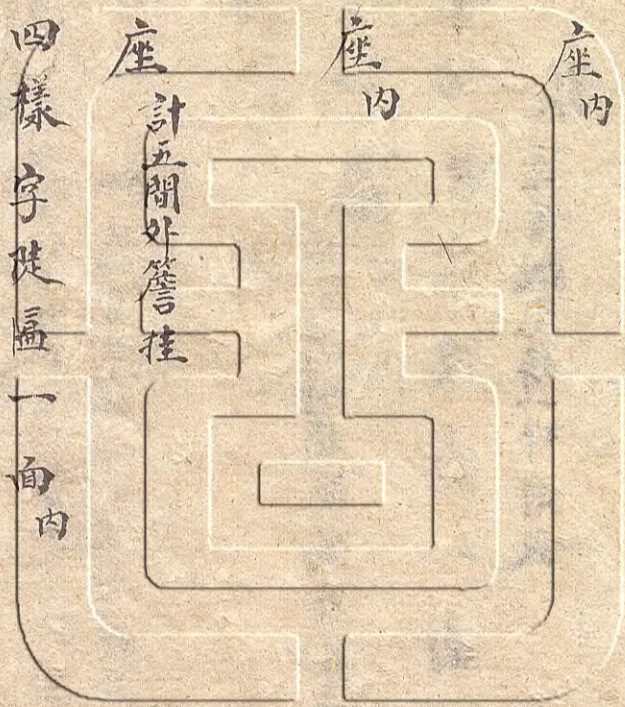 座内
座内
座
計五間外簷挂
四樣字陡匾一面内